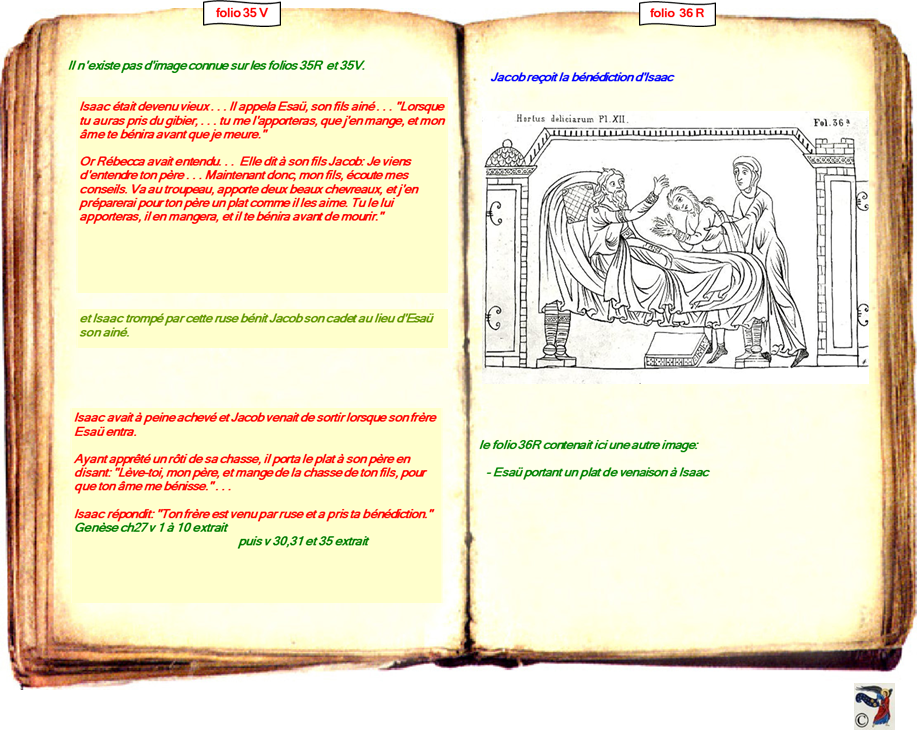 folio 35 V
Il n'existe pas d'image connue sur les folios 35R et 35V.
Isaac était devenu vieux . . . Il appela Esaü, son fils ainé . . . "Lorsque
tu auras pris du gibier, . . . tu me l'apporteras, que j'en mange, et mon
âme te bénira avant que je meure."
Or Rébecca avait entendu. . . Elle dit à son fils Jacob: Je viens
d'entendre ton père . . . Maintenant donc, mon fils, écoute mes
conseils. Va au troupeau, apporte deux beaux chevreaux, et j'en
préparerai pour ton père un plat comme il les aime. Tu le lui
apporteras, il en mangera, et il te bénira avant de mourir."
et Isaac trompé par cette ruse bénit Jacob son cadet au lieu d'Esaü
son ainé.
Isaac avait à peine achevé et Jacob venait de sortir lorsque son frère
Esaü entra.
Ayant apprêté un rôti de sa chasse, il porta le plat à son père en
disant: "Lève-toi, mon père, et mange de la chasse de ton fils, pour
que ton âme me bénisse." . . .
Isaac répondit: "Ton frère est venu par ruse et a pris ta bénédiction."
Genèse ch27 v 1 à 10 extrait
puis v 30,31 et 35 extrait
folio 36 R
Jacob reçoit la bénédiction d'Isaac
Hortus deliciarum Pl. XII.
Fol. 36ª
le folio 36R contenait ici une autre image:
- Esaü portant un plat de venaison à Isaac
©